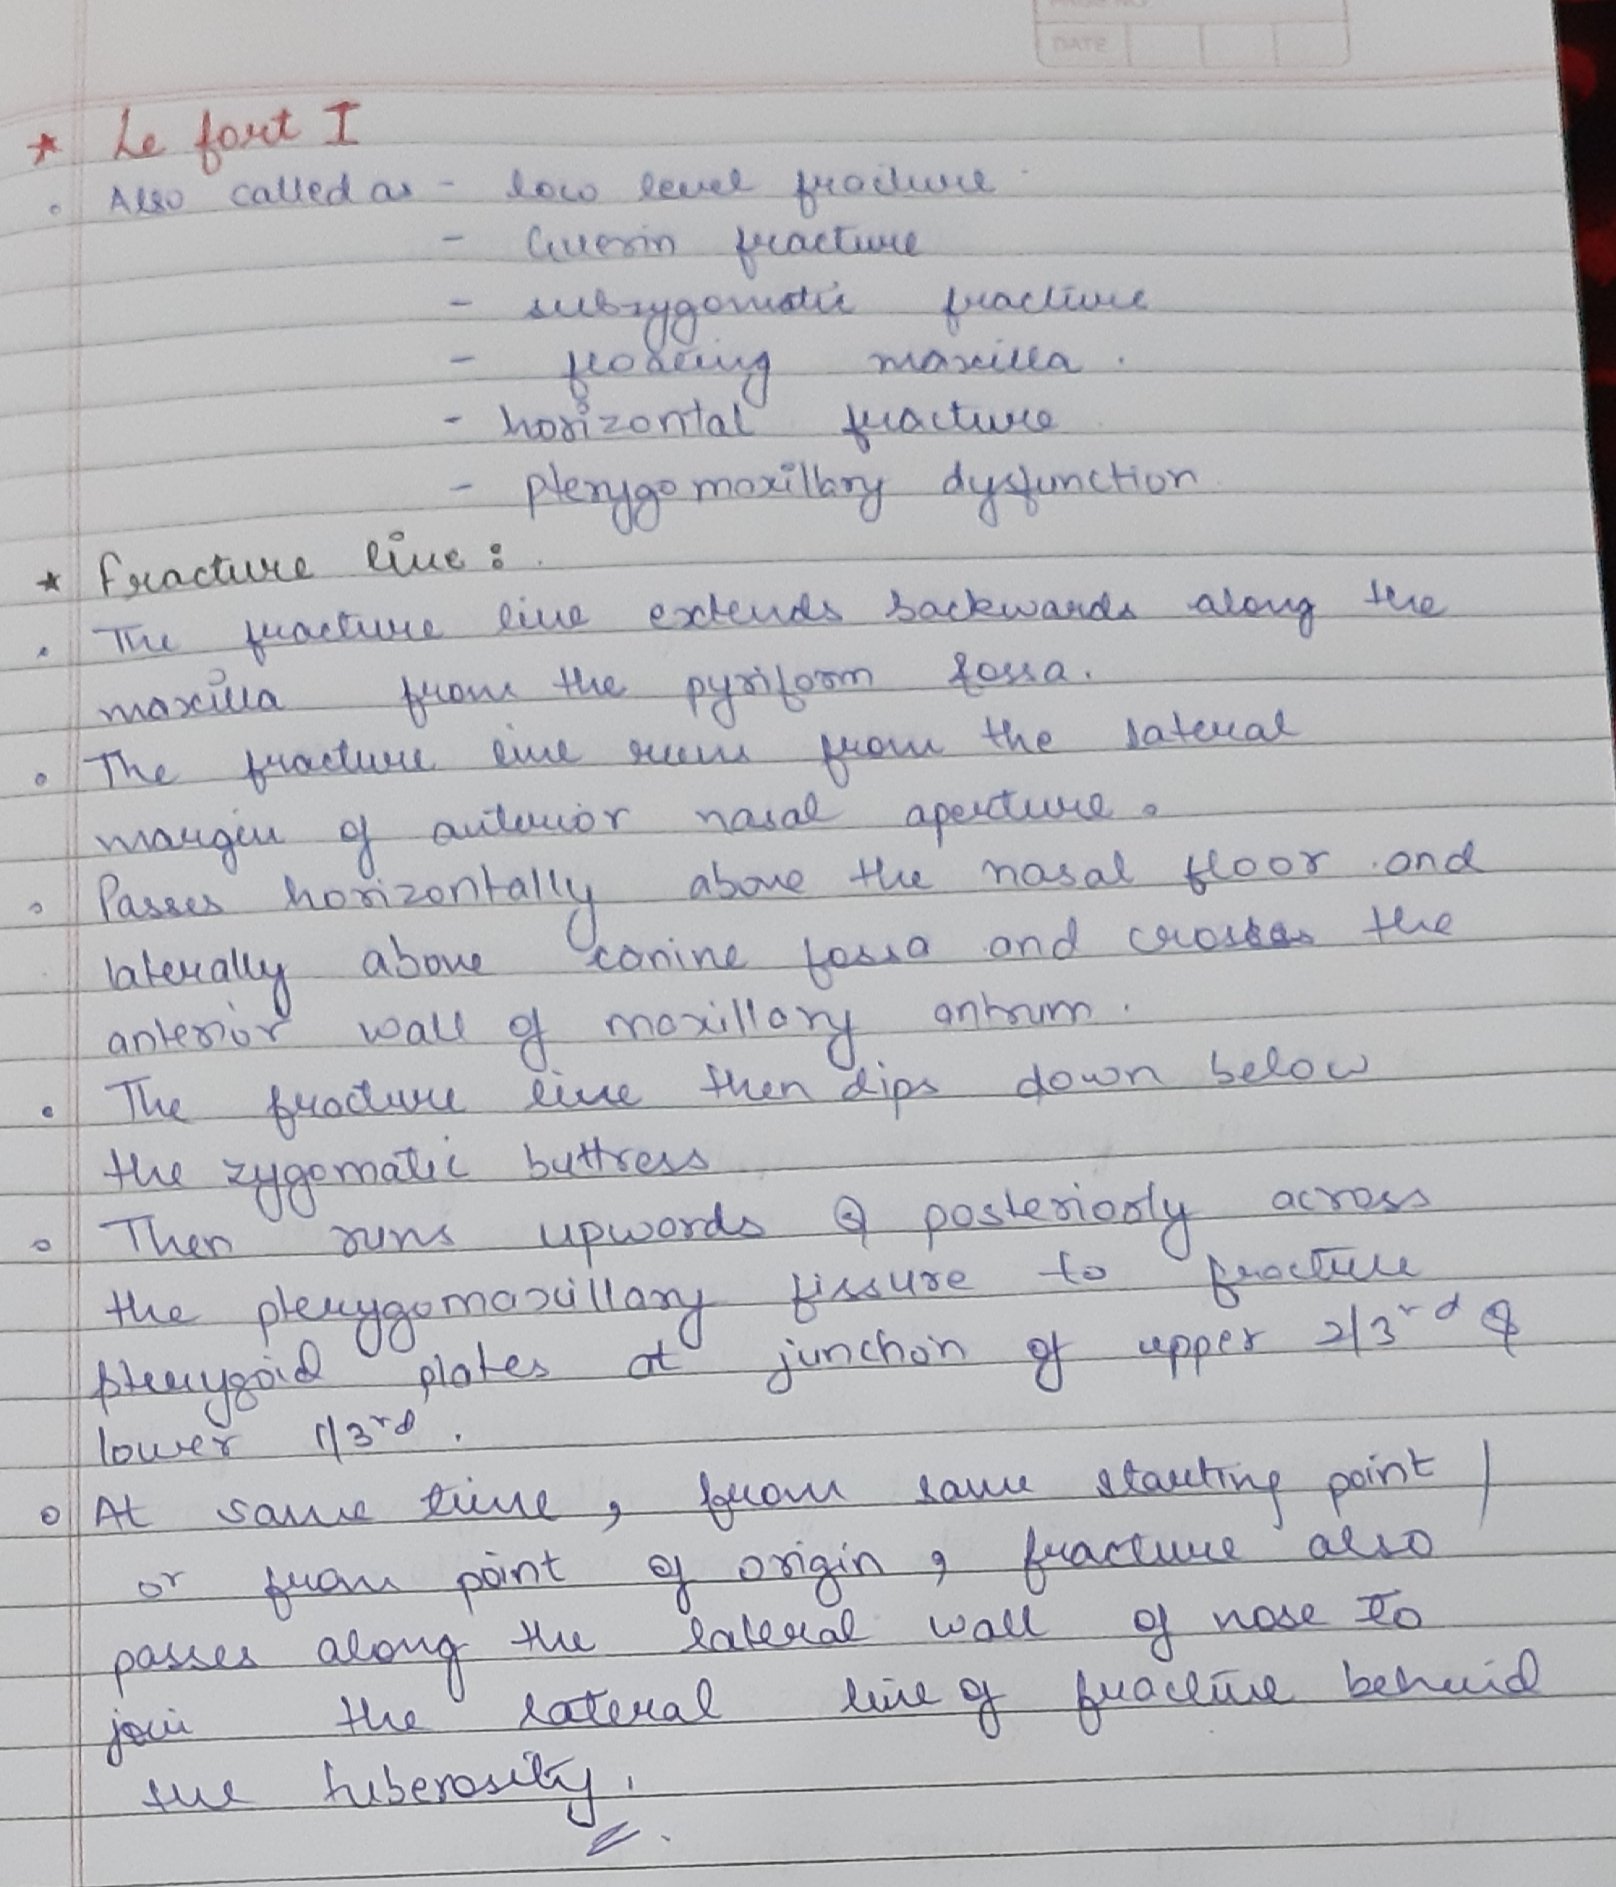 DATE
* Le fort I
◦ Also called as - low level fracture
- Guerin fracture
- subzygomatic fracture
- floating maxilla.
- horizontal fracture
- pterygomaxillary dysfunction
* Fracture line:
• The fracture line extends backwards along the
maxilla from the pyriform fossa.
◦ The fracture line runs from the lateral
margin of anterior nasal aperture.
◦ Passes horizontally above the nasal floor and
laterally above canine fossa and crosses the
anterior wall of maxillary antrum.
• The fracture line then dips down below
the zygomatic buttress
◦ Then runs upwards & posteriorly across
the pterygomaxillary fissure to fracture
pterygoid plates at junction of upper 2/3rd &
lower 1/3rd.
◦ At same time, from same starting point /
or from point of origin, fracture also
passes along the lateral wall of nose to
join the lateral line of fracture behind
the tuberosity.